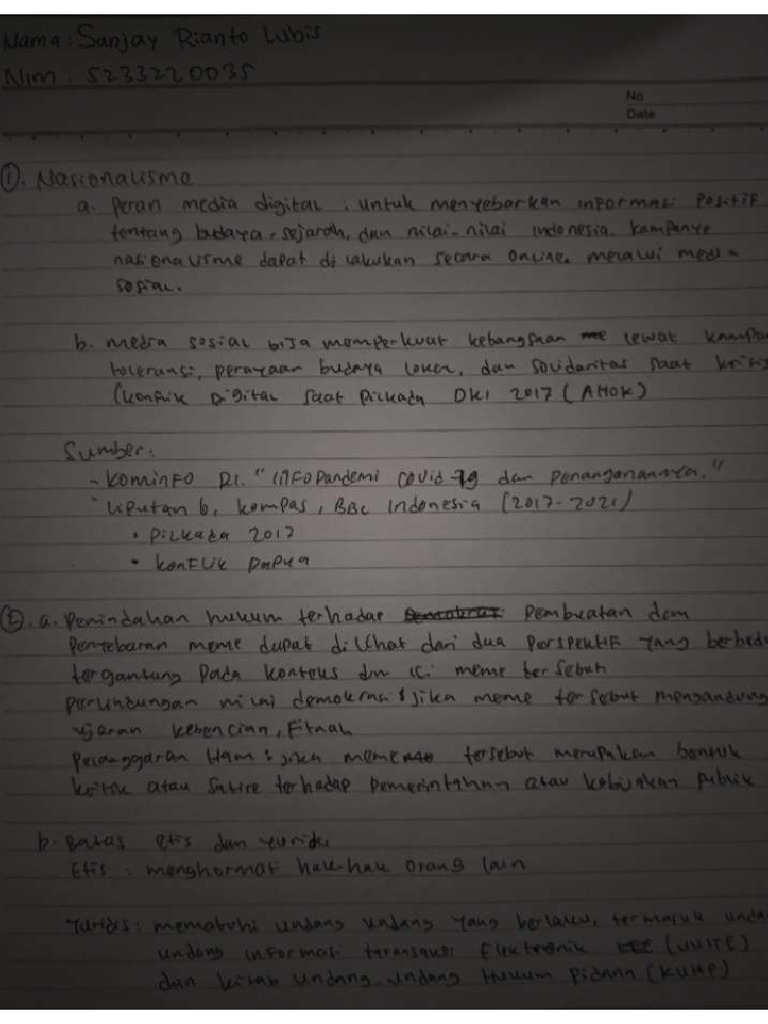 Nama : Sanjay Rianto Lubis
Nim : 5233220035
No
Date
1. Nasionalisme
a. Peran media digital : untuk menyebarkan informasi Positif
tentang budaya, sejarah, dan nilai-nilai indonesia. kampanye
nasionalisme dapat di lakukan secara online. melalui media
sosial.
b. media sosial bisa memperkuat kebangsaan lewat
toleransi, perayaan budaya lokal, dan solidaritas saat krisis
(konflik Digital saat Pilkada DKI 2017 (AHOK)
Sumber:
- KOMINFO RI. "INFOPandemi covid-19 dan Penanganannya."
- Liputan 6, kompas, BBC Indonesia (2017-2021)
• Pilkada 2017
• konflik Papua
2. a. Penindahan hukum terhadap Pembuatan dan
Penyebaran meme dapat dilihat dari dua Perspektif yang
tergantung Pada konteks dan isi meme tersebut
perlindungan nilai demokrasi : jika meme tersebut mengandung
ujaran kebencian, Fitnah
Pelanggaran Ham : jika meme tersebut merupakan bentuk
kritik atau Satire terhadap Pemerintahan atau kebijakan Publik
b. Batas etis dan yuridis
Etis : menghormati hak-hak orang lain
Yuridis : mematuhi undang undang yang berlaku, termasuk
undang informasi Elektronik (UUITE)
dan kitab undang-undang Hukum Pidana (KUHP)